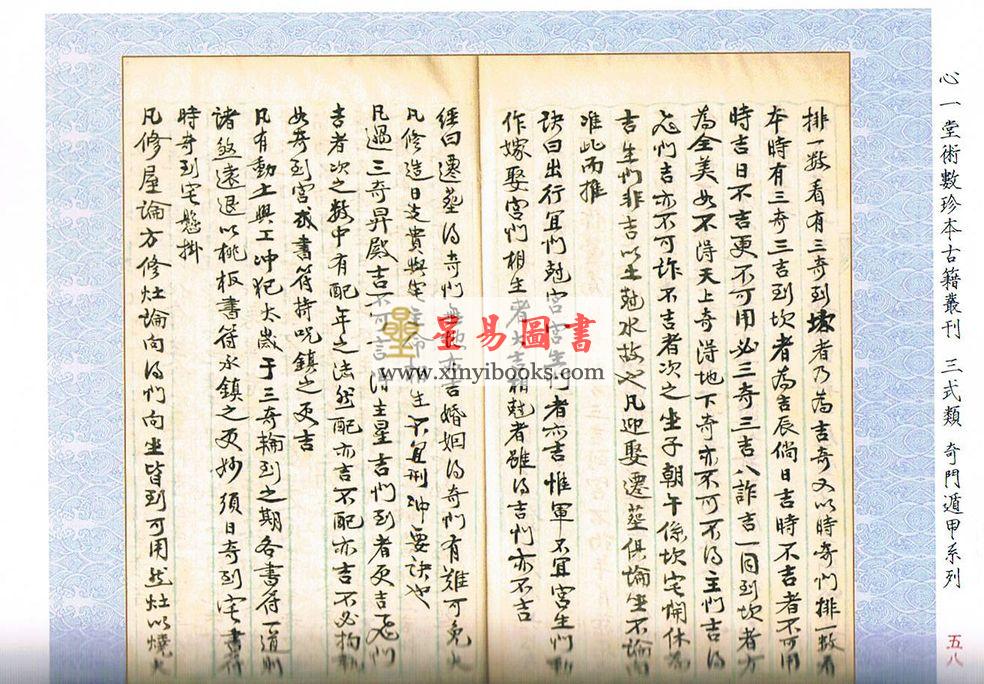 心一堂術數珍本古籍叢刊 三式類 奇門遁甲系列
五八
排一數看有三奇到坎者乃為吉奇又以時奇門排一數看
本時有三奇三吉到坎者為吉辰倘日吉時不吉者不可用
時吉日不吉更不可用必三奇三吉八詐吉一同到坎者方
為全美如不得天上奇得地下奇亦不可不得主門吉得
飛門吉亦不可詐不吉者次之坐子朝午係坎宅開休為
吉生門非吉以土尅水故也凡迎娶遷葬俱論坐不論向
准此而推
訣曰出行宜門尅宮宮生門者亦吉惟軍不宜宮生門
作嫁娶宮門相生者大吉相尅者雖得吉門亦不吉
經曰遷葬得奇門亦吉婚姻得奇門有難可免火
凡修造日支貴與宅主命相生不宜刑冲要訣也
凡遇三奇昇殿吉不可言主星吉門到者更吉飛門
吉者次之數中有配年之法然配亦吉不配亦吉不必拘
如奇到宮或書符持咒鎮之更吉
凡有動土興工冲犯太歲于三奇輪到之期各書符一道則
諸煞遠退以桃板書符永鎮之更妙須日奇到宅書符
時奇到宅懸掛
凡修屋論方修灶論向得門向坐皆到可用然灶以燒火
星易圖書
www.xinyibooks.com